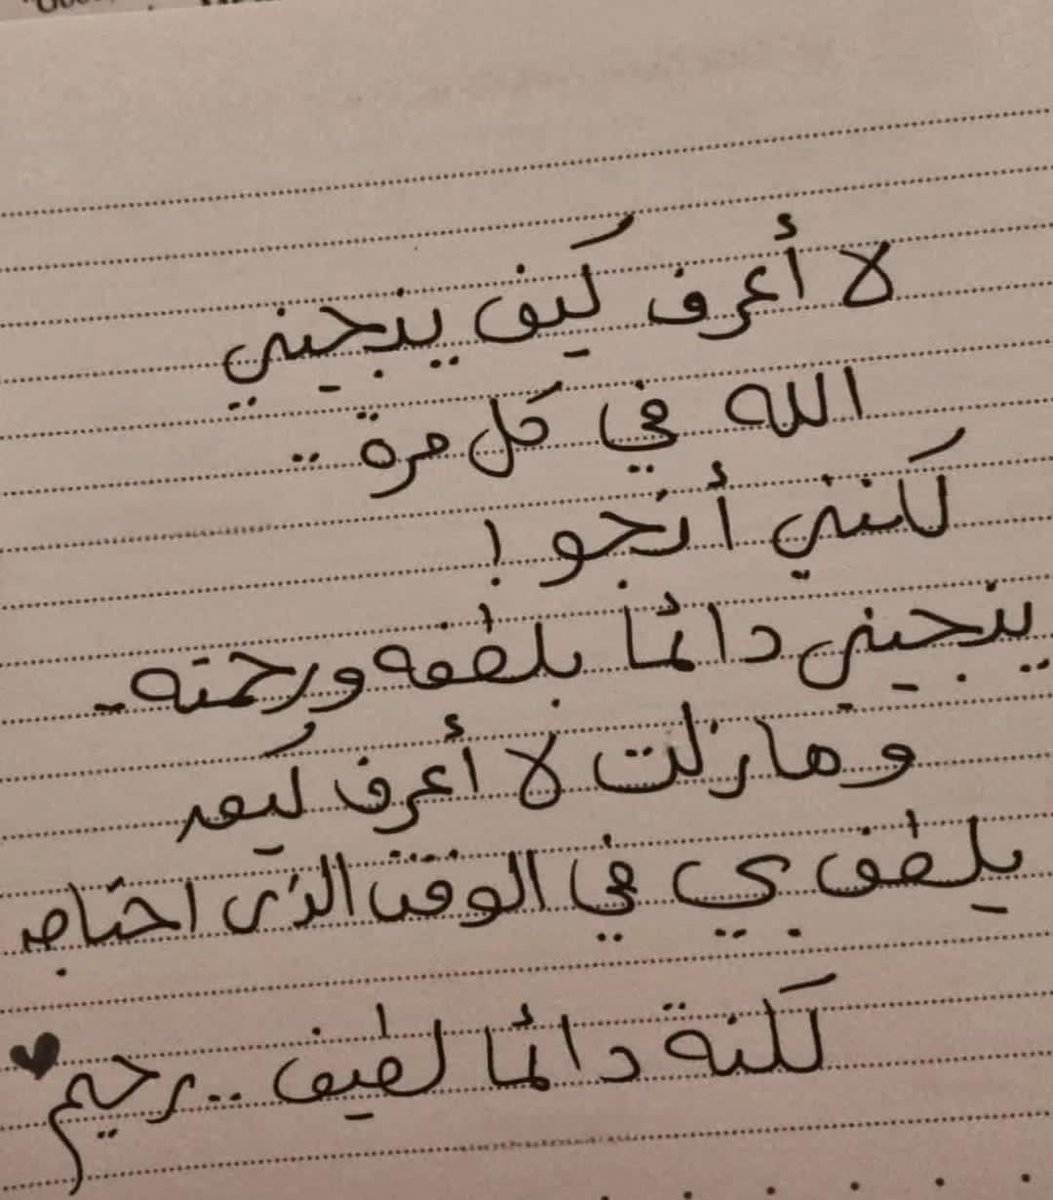 لا أعرف كيف ينجيني
الله في كل مرة ..
لكنني أنجو !
ينجيني دائمًا بلطفه ورحمته -
وما زلت لا أعرف كيف
يلطف بي في الوقت الذي احتاجه
لكنة دائمًا لطيف .. رحيم